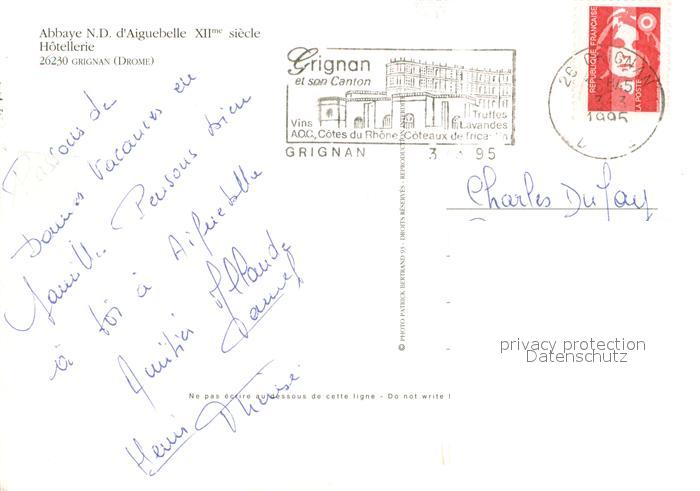 Abbaye N.D. d'Aiguebelle XIIme siècle
Hôtellerie
26230 GRIGNAN (DROME)
Passons de
Bonnes Vacances en
famille Pensons bien
à toi à Aiguebelle
Amitiés
Daniel
Henri Thérèse
Grignan
et son Canton
Vins
Truffes
Lavandes
A.O.C. Côtes du Rhône Côteaux de Tricastin
GRIGNAN 3 95
REPUBLIQUE FRANÇAISE
LA POSTE
26 GRIGNAN
1995
Charles Dufay
© PHOTO PATRICK BERTRAND 93 - DROITS RÉSERVÉS
privacy protection
Datenschutz
Ne pas écrire au dessous de cette ligne - Do not write